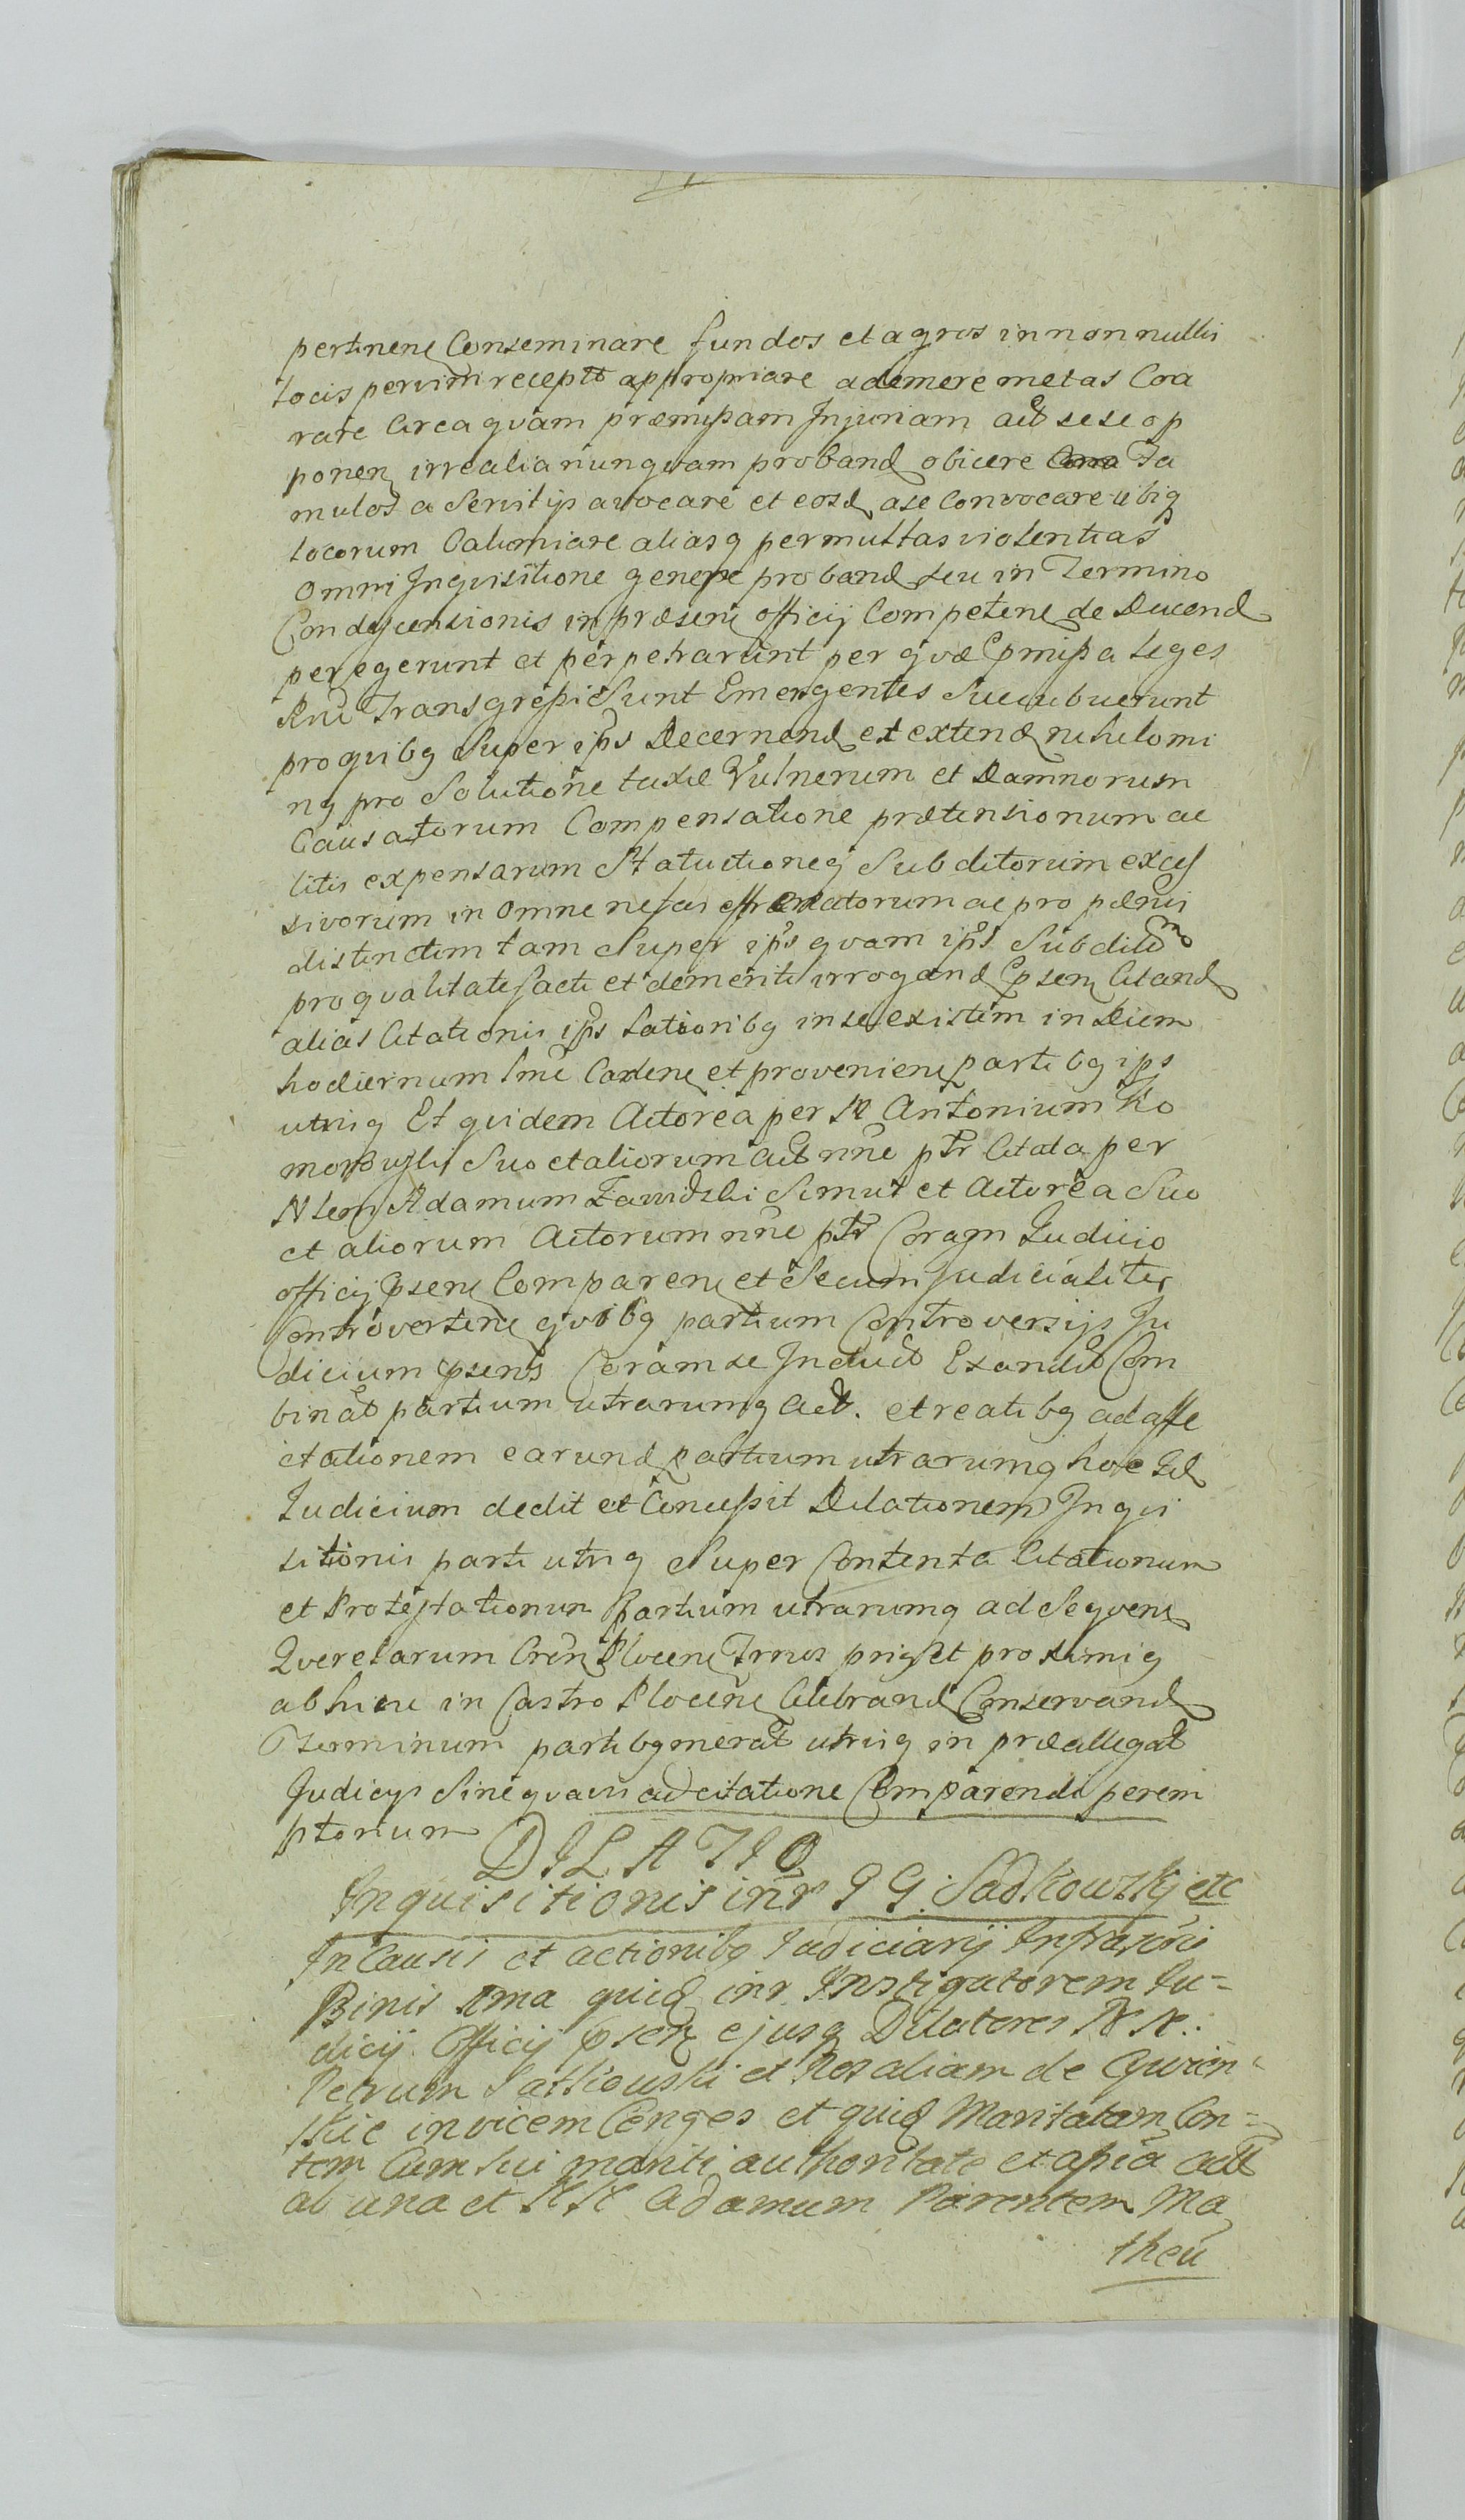 pertinen Conseminare fundos et agros in non nullis
locis per vim recepto appropriare ademere metas Coa
rare Circa quam præmissam Injuriam act sese op
ponen irrealia nunquam proband obicere Fa
mulos a Servitijs avocare et eosd a se Convocare ubiq
locorum Calumiare aliasq permultas violentias
Omni Inquisitione genere proband seu in Termino
Condescensionis in præsen officij Competen de Ducend
peregerunt et perpetrarunt per quæ pmissa Leges
Rni Transgressi Sunt Emergentes Succubuerunt
pro quibq Super ips Decernend et extend nihilomi
nq pro Solutione taxæ Vulnerum et Damnorum
Causatorum Compensatione prætensionum ac
litis expensarum Statuitioneq Subditorum exces
sivorum in omne nefas effrænatorum ac pro pænis
distinctim tam Super ips quam ips Subditis
pro qualitate facti et demeriti irrogand psen Citand
alias Citationis ips Lationibq in se existim in Diem
hodiernum Sme Caden et provenien partibq ips
utrisq Et quidem Actorea per N Antonium Ko
morowski Suo et aliorum Act nne ptr Citata per
Nlem Adamum Zawidzki Simul et Actorea Suo
et aliorum Actorum nne ptr Coram Judicio
officij psen Comparen et Secum Judicialiter
Controverten quibq partium Controversijs Ju
dicium psens Coram se Induct Exandit Com
binat partium utrarumq Act. et reatibq ad affe
ctationem earund partium utrarumq hoc Id
Judicium dedit et Concessit Dilationem Inqui
sitionis parti utriq Super Contenta Citationum
et Protestationum Partium utrarumq ad Sequen
Querelarum Cren Plocen Trnos prisq et proximisq
abhinc in Castro Plocen Celebrand Conservand
Terminum partibq merat utrisq in præallegat
Judicijs Sine quavis adcitatione Comparendi perem
ptorium
DILATIO
Inquisitionis inr GG. Sadkowskj etc
In Causis et actionibq Judiciarij Infrascris
Binis Ima quid inr Instigatorem Ju-
dicij Officij psen ejusq Dilatores NN.
Petrum Satkowski et Rosaliam de
skie invicem Conges et quid Maritatam Con-
tem Cum sui mariti authoritate et assia act
ab una et NN Adamum Parentem Ma
theu